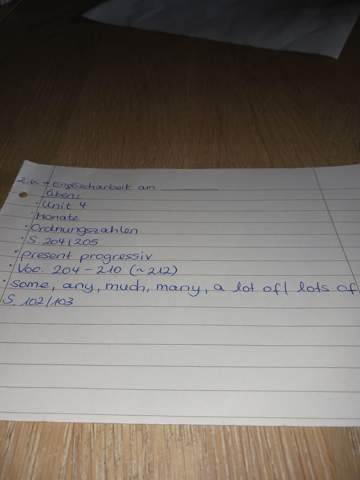 Englischarbeit am ________
Üben:
· Unit 4
· Monate
· Ordnungszahlen
· S. 204/205
· present progressiv
· Voc. 204 - 210 (~212)
· some, any, much, many, a lot of/ lots of
S. 102/103